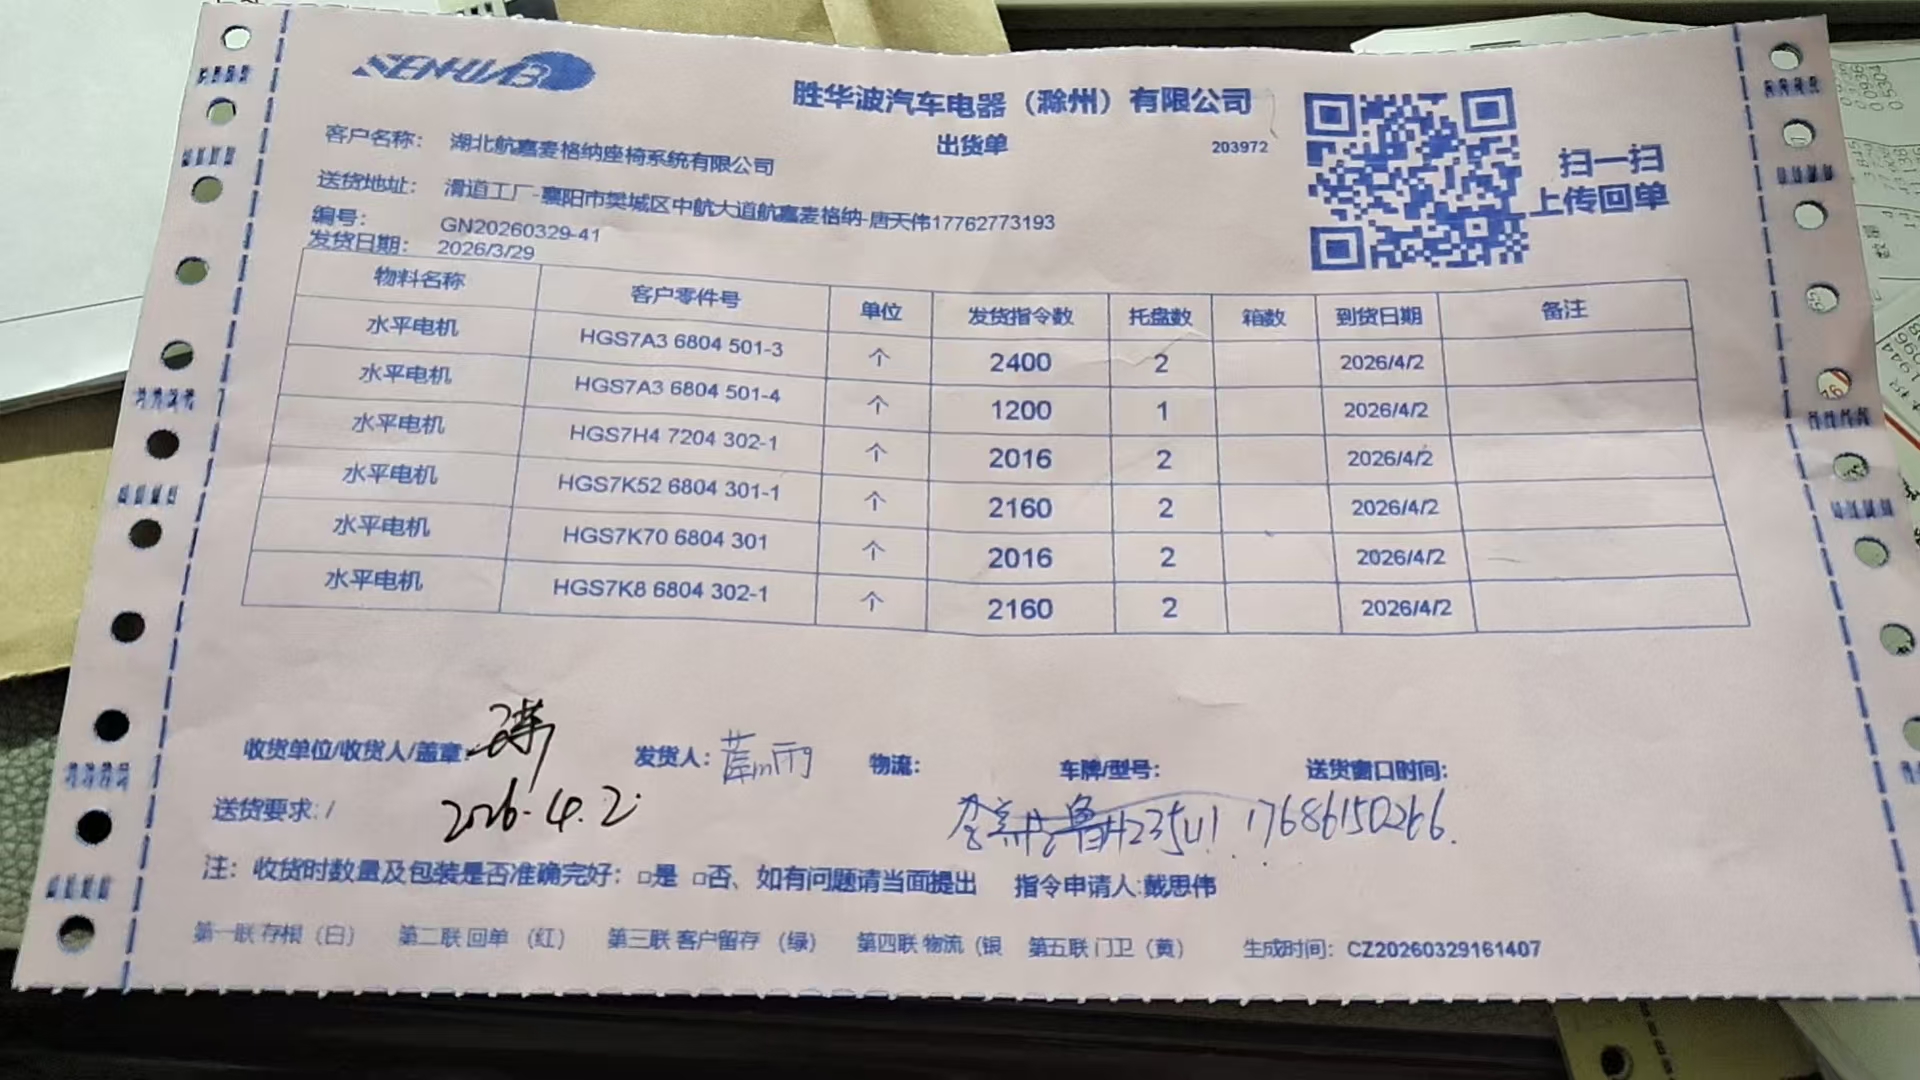 SENHUABO
胜华波汽车电器（滁州）有限公司
出货单
203972
扫一扫
上传回单
客户名称： 湖北航嘉麦格纳座椅系统有限公司
送货地址： 滑道工厂-襄阳市樊城区中航大道航嘉麦格纳-唐天伟17762773193
编号： GN20260329-41
发货日期： 2026/3/29
物料名称 客户零件号 单位 发货指令数 托盘数 箱数 到货日期 备注
水平电机 HGS7A3 6804 501-3 个 2400 2 2026/4/2
水平电机 HGS7A3 6804 501-4 个 1200 1 2026/4/2
水平电机 HGS7H4 7204 302-1 个 2016 2 2026/4/2
水平电机 HGS7K52 6804 301-1 个 2160 2 2026/4/2
水平电机 HGS7K70 6804 301 个 2016 2 2026/4/2
水平电机 HGS7K8 6804 302-1 个 2160 2 2026/4/2
收货单位/收货人/盖章： 发货人： 物流： 车牌/型号： 送货窗口时间：
送货要求：/ 2026.4.2 17686150266.
注：收货时数量及包装是否准确完好：□是 □否、如有问题请当面提出 指令申请人:戴思伟
第一联 存根（白） 第二联 回单（红） 第三联 客户留存（绿） 第四联 物流（银 第五联 门卫（黄） 生成时间：CZ20260329161407